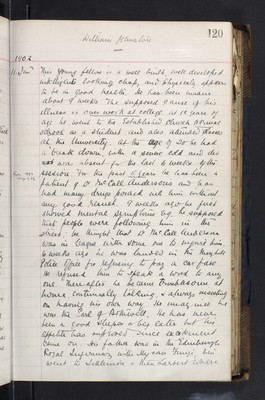 120
William Johnston
1902
11 Jan
This young fellow is a well built, well developed
intelligent looking chap, and physically appears
to be in good health. He has been insane
about 9 weeks. The supposed cause of his
illness is over work at college. at 18 years of
age he went to the Established Church Normal
School as a student and also attended classes
at the University. At the age of 20 he had
a break down, with a severe cold and
was absent for the last 6 weeks of his
session. For the past years he has been a
patient of Dr McCall Anderson and has
had many drugs poured into him without
any good result. 9 weeks ago he first
showed mental symptoms eg he supposed
that people were following him in the
street: he thought that Dr McCall Anderson
was in league with some one to injure him.
6 weeks ago he was landed in the
Police Office for refusing to pay a car fare
He refused then to speak a word to any
one. Thereafter he became troublesome at
home, continually talking & always insisting
on having his own way. He imagined he
was the Earl of Bothwell. He has never
been a good sleeper or big eater but his
appetite has improved since excitement
came on. His father was in the Edinburgh
Royal Infirmary with
went to